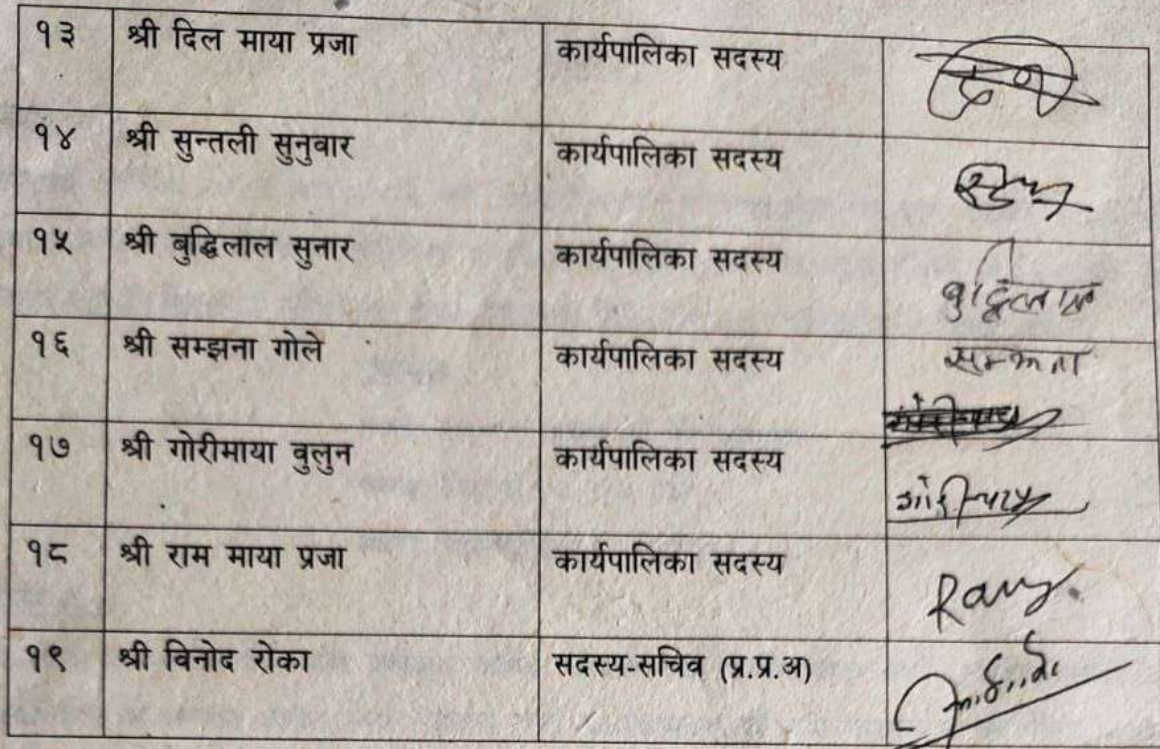 १३ श्री दिल माया प्रजा कार्यपालिका सदस्य
१४ श्री सुन्तली सुनुवार कार्यपालिका सदस्य
१५ श्री बुद्धिलाल सुनार कार्यपालिका सदस्य बुद्धिलाल
१६ श्री सम्झना गोले कार्यपालिका सदस्य सम्झना
१७ श्री गोरीमाया वुलुन कार्यपालिका सदस्य
१८ श्री राम माया प्रजा कार्यपालिका सदस्य
१९ श्री विनोद रोका सदस्य-सचिव (प्र.प्र.अ)